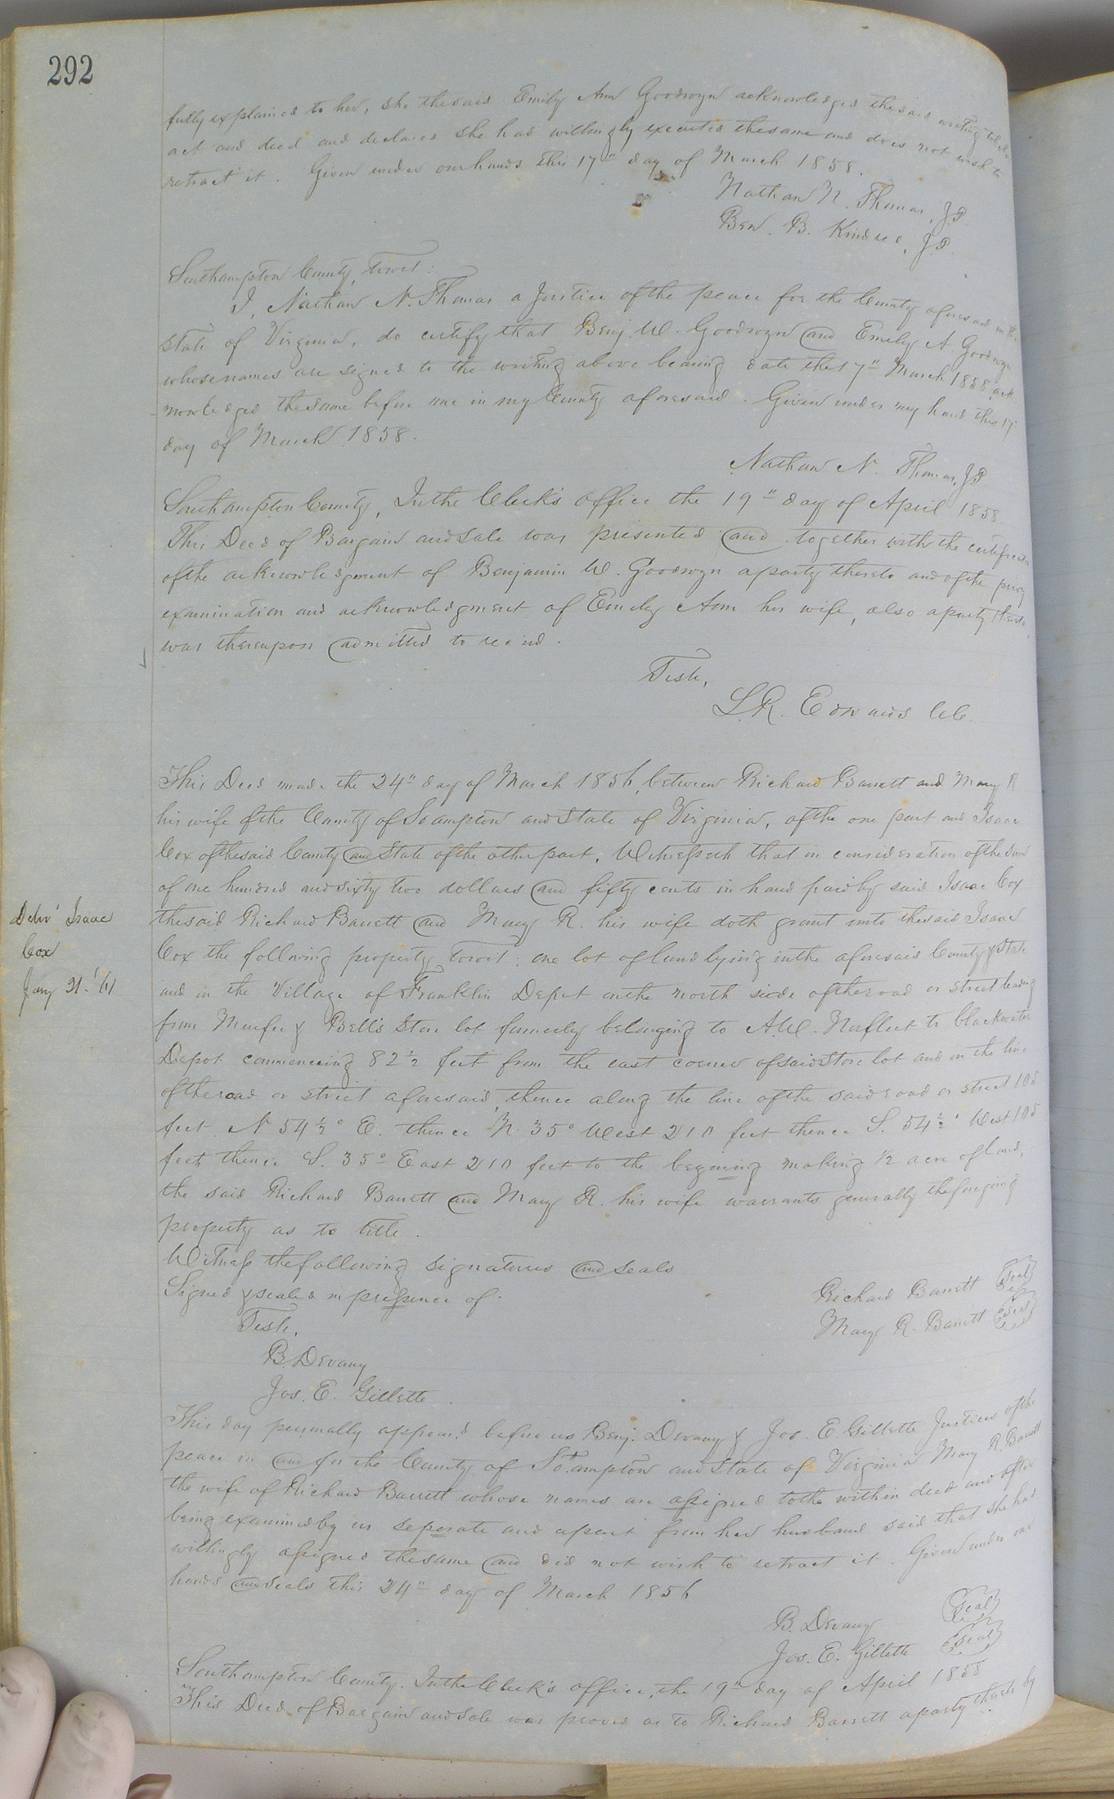 292
fully explained to her, she the said Emily Ann Goodwyn acknowledged the said writing to be her
act and deed and declared she had willingly executed the same and does not wish to
retract it. Given under our hands this 17" day of March 1858.
Nathan N. Thomas, J.P.
Ben. B. Kindred, J.P.
Southampton County, towit:
I, Nathan N. Thomas a Justice of the peace for the County aforesaid in the
State of Virginia, do certify that Benj. W. Goodwyn and Emily A Goodwyn
whose names are signed to the writing above bearing date the 17" March 1858 ack
nowledged the same before me in my County aforesaid. Given under my hand this 17"
day of March 1858.
Nathan N. Thomas, J.P
Southampton County, In the Clerk's office the 19" day of April 1858
This Deed of Bargain and Sale was presented and together with the certificate
of the acknowledgment of Benjamin W. Goodwyn a party thereto and of the privy
examination and acknowledgment of Emily Ann his wife, also a party thereto,
was thereupon admitted to record.
Teste,
L.R. Edwards C.C.
This Deed made the 24" day of March 1856, between Richard Barrett and Mary R
his wife of the County of Soampton and State of Virginia, of the one part and Isaac
Cox of the said County and State of the other part, Witnesseth that in consideration of the sum
of one hundred and sixty two dollars and fifty cents in hand paid by said Isaac Cox
the said Richard Barrett and Mary R. his wife doth grant unto the said Isaac
Cox the following property towit: one lot of land lying in the aforesaid County & State
Deliv'd Isaac
Cox
Jany 21. '61
and in the Village of Franklin Depot on the north side of the road or street leading
from Murfee & Bell's Store lot formerly belonging to A.W. Norfleet to blackwater
Depot commencing 82½ feet from the east corner of said Store lot and on the line
of the road or street aforesaid, thence along the line of the said road or street 105
feet N 54½° E. thence N. 35° West 210 feet thence S. 54½° West 105
feet, thence S. 35° East 210 feet to the begining making ½ acre of land,
the said Richard Barrett and Mary R. his wife warrants generally the forgoing
property as to title.
Witness the following signatures and seals
Signed & sealed in presence of.
Richard Barrett Seal
Mary R. Barrett Seal
Teste,
B. Devany
Jos. E. Gillette
This day personally appeared before us Benj. Devany & Jos. E Gillette Justices of the
peace in and for the County of Sotampton and State of Virginia Mary R. Barrett
the wife of Richard Barrett whose names are assigned to the within deed and after
being examined by us seperate and apart from her husband said that she had
willingly assigned the same and did not wish to retract it. Given under our
hands and seals this 24" day of March 1856
B. Devany Seal
Jos. E. Gillette Seal
Southampton County. In the Clerk's office, the 19" day of April 1858
This Deed of Bargain and Sale was proved as to Richard Barrett a party thereto by